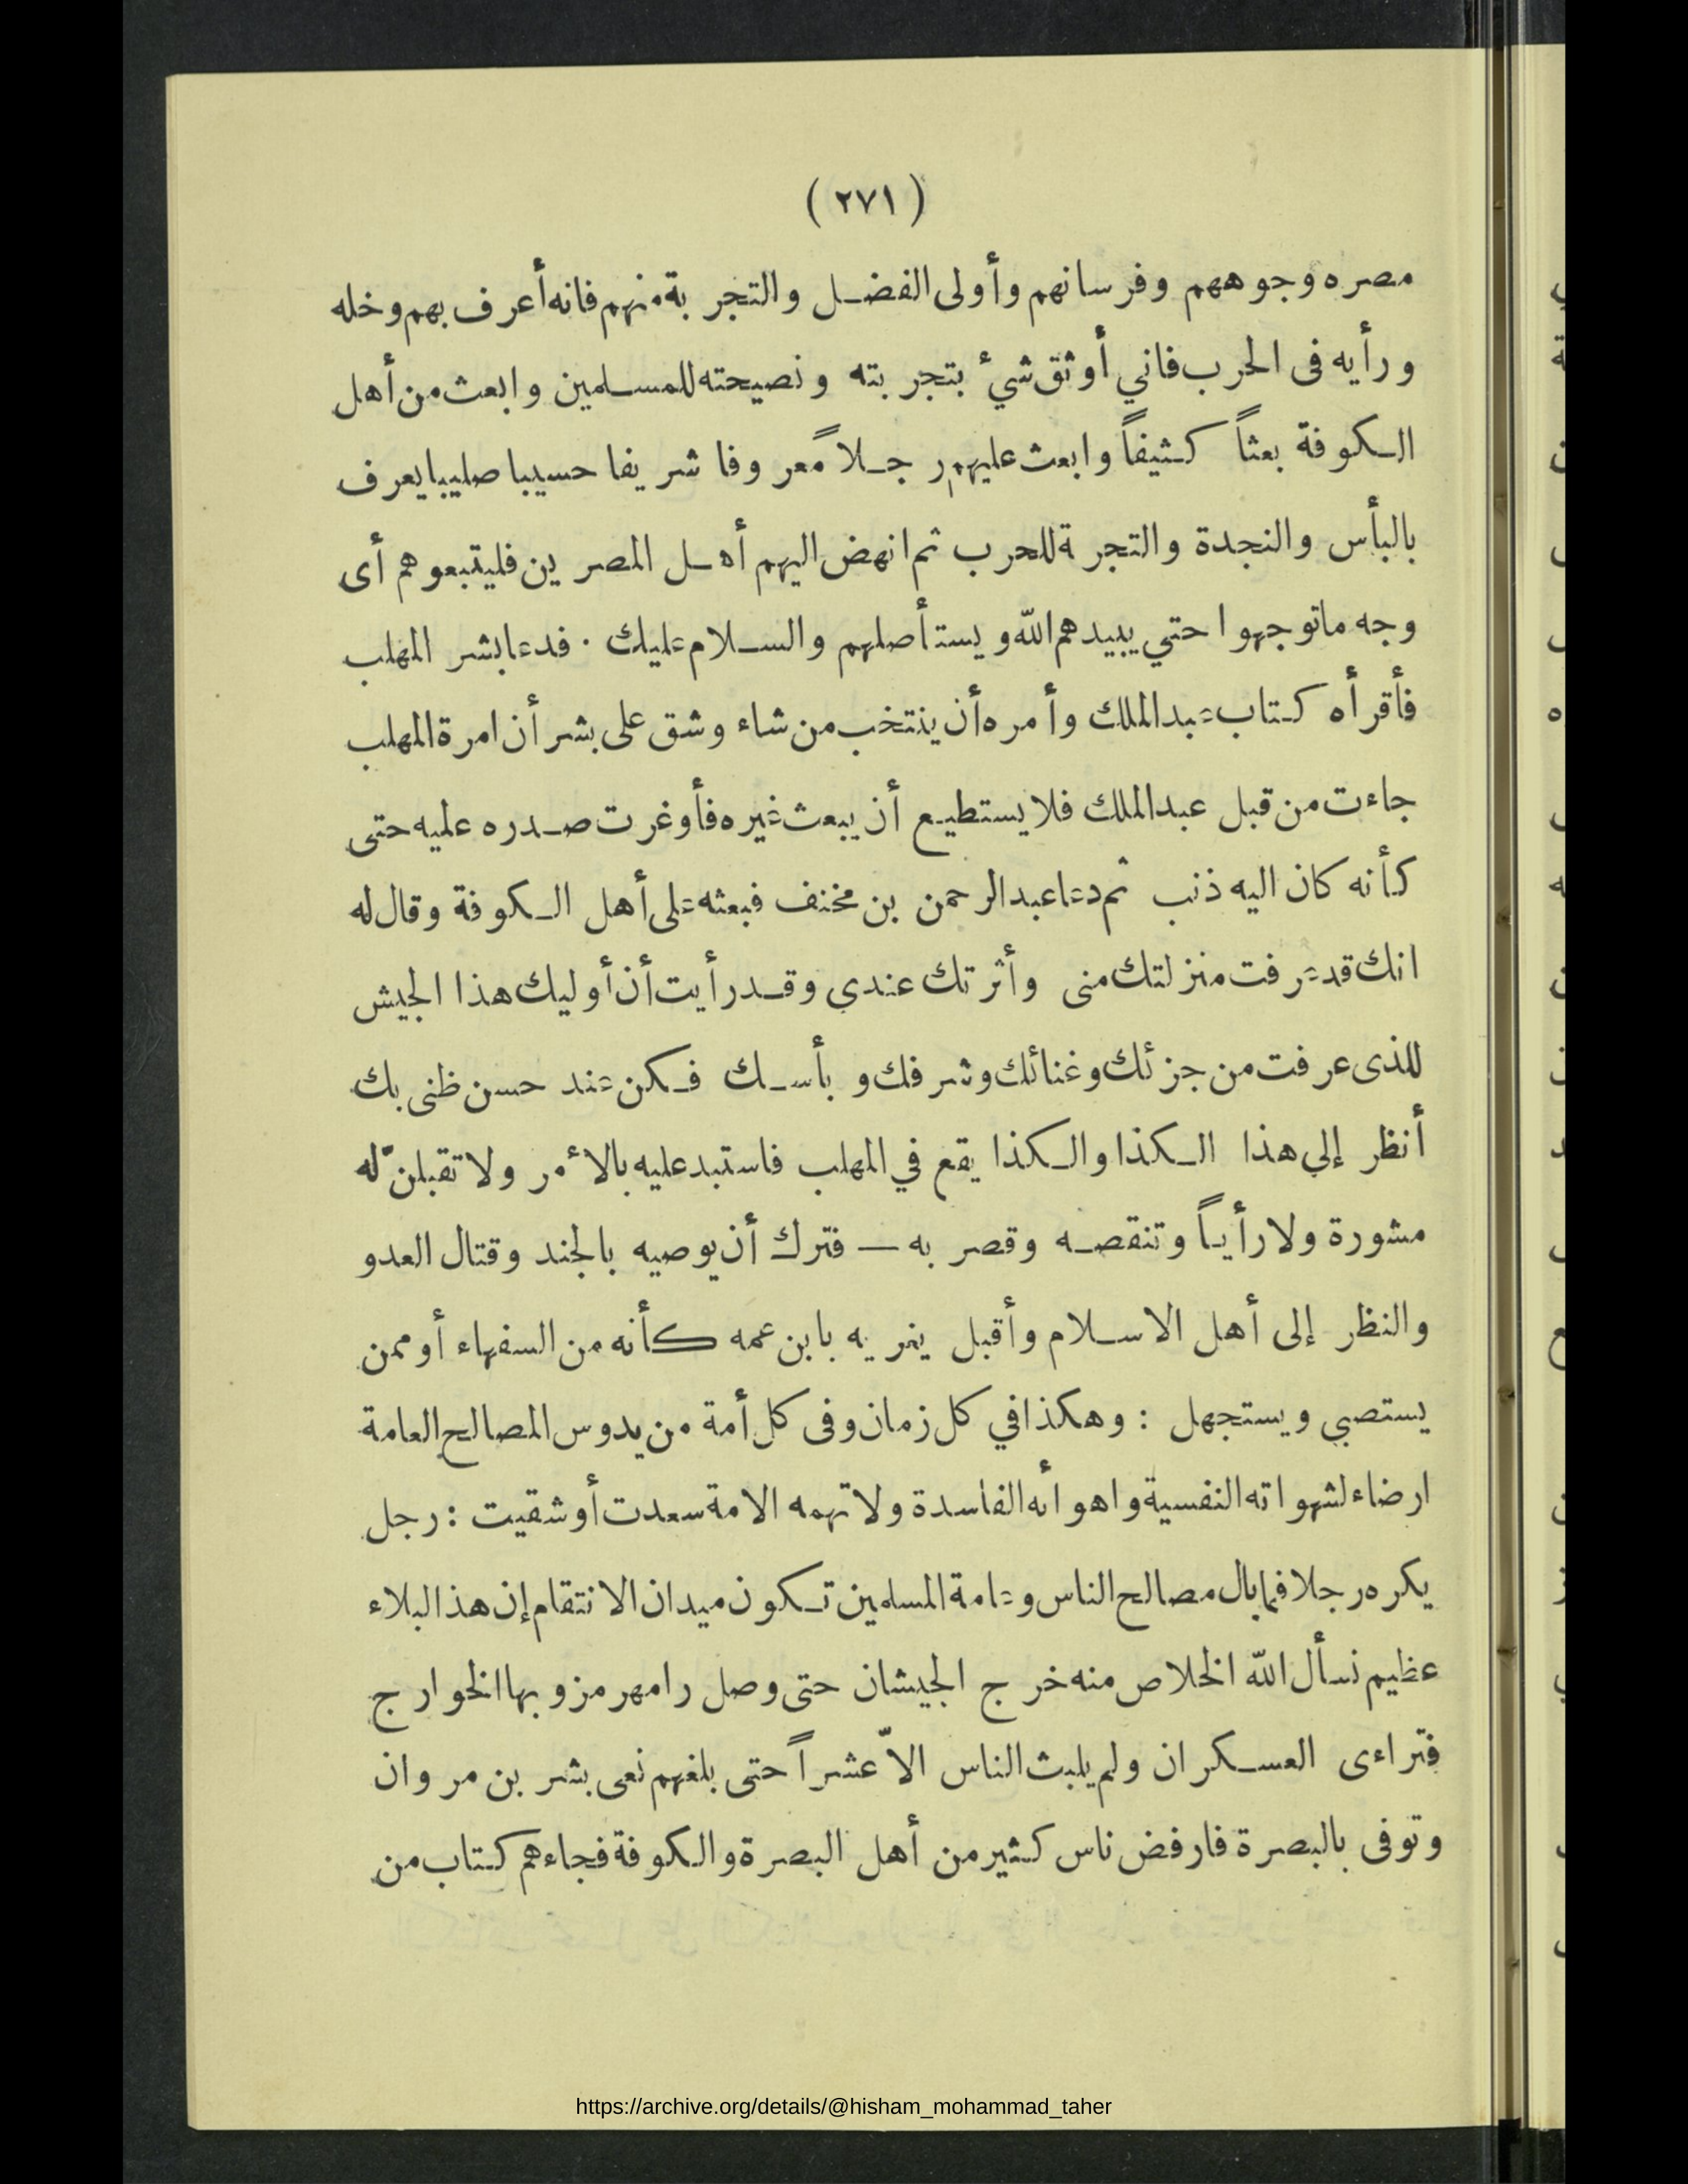 (٢٧١)
مصره وجوههم وفرسانهم وأولى الفضل والتجربة منهم فانه أعرف بهم وخله
ورأيه فى الحرب فاني أوثق شيء بتجربته ونصيحته للمسلمين وابعث من أهل
الكوفة بعثاً كثيفاً وابعث عليهم رجلاً معروفا شريفا حسيبا صليبا يعرف
بالبأس والنجدة والتجرة للحرب ثم انهض اليهم أهل المصرين فليتبعوهم أى
وجه ماتوجهوا حتي يبيدهم الله ويستأصلهم والسلام عليك . فدعا بشر المهلب
فأقرأه كتاب عبد الملك وأمره أن ينتخب من شاء وشق على بشر أن امرة المهلب
جاءت من قبل عبد الملك فلا يستطيع أن يبعث غيره فأوغرت صدره عليه حتى
كأنه كان اليه ذنب ثم دعا عبد الرحمن بن مخنف فبعثه على أهل الكوفة وقال له
انك قد عرفت منزلتك منى وأثرتك عندي وقد رأيت أن أوليك هذا الجيش
للذى عرفت من جزئك وغنائك وشرفك وبأسك فكن عند حسن ظنى بك
أنظر إلي هذا الكذا والكذا يقع في المهلب فاستبد عليه بالأمر ولا تقبلنّ له
مشورة ولا رأياً وتنقصه وقصر به — فترك أن يوصيه بالجند وقتال العدو
والنظر إلى أهل الاسلام وأقبل يغريه بابن عمه كأنه من السفهاء أو ممن
يستصبي ويستجهل : وهكذا في كل زمان وفى كل أمة من يدوس المصالح العامة
ارضاء لشهواته النفسية واهوائه الفاسدة ولا تهمه الامة سعدت أو شقيت : رجل
يكره رجلا فما بال مصالح الناس وعامة المسلمين تكون ميدان الانتقام إن هذا البلاء
عظيم نسأل الله الخلاص منه خرج الجيشان حتى وصل رامهرمز وبها الخوارج
فتراءى العسكران ولم يلبث الناس الاّ عشراً حتى بلغهم نعى بشر بن مروان
وتوفى بالبصرة فارفض ناس كثير من أهل البصرة والكوفة فجاءهم كتاب من
https://archive.org/details/@hisham_mohammad_taher